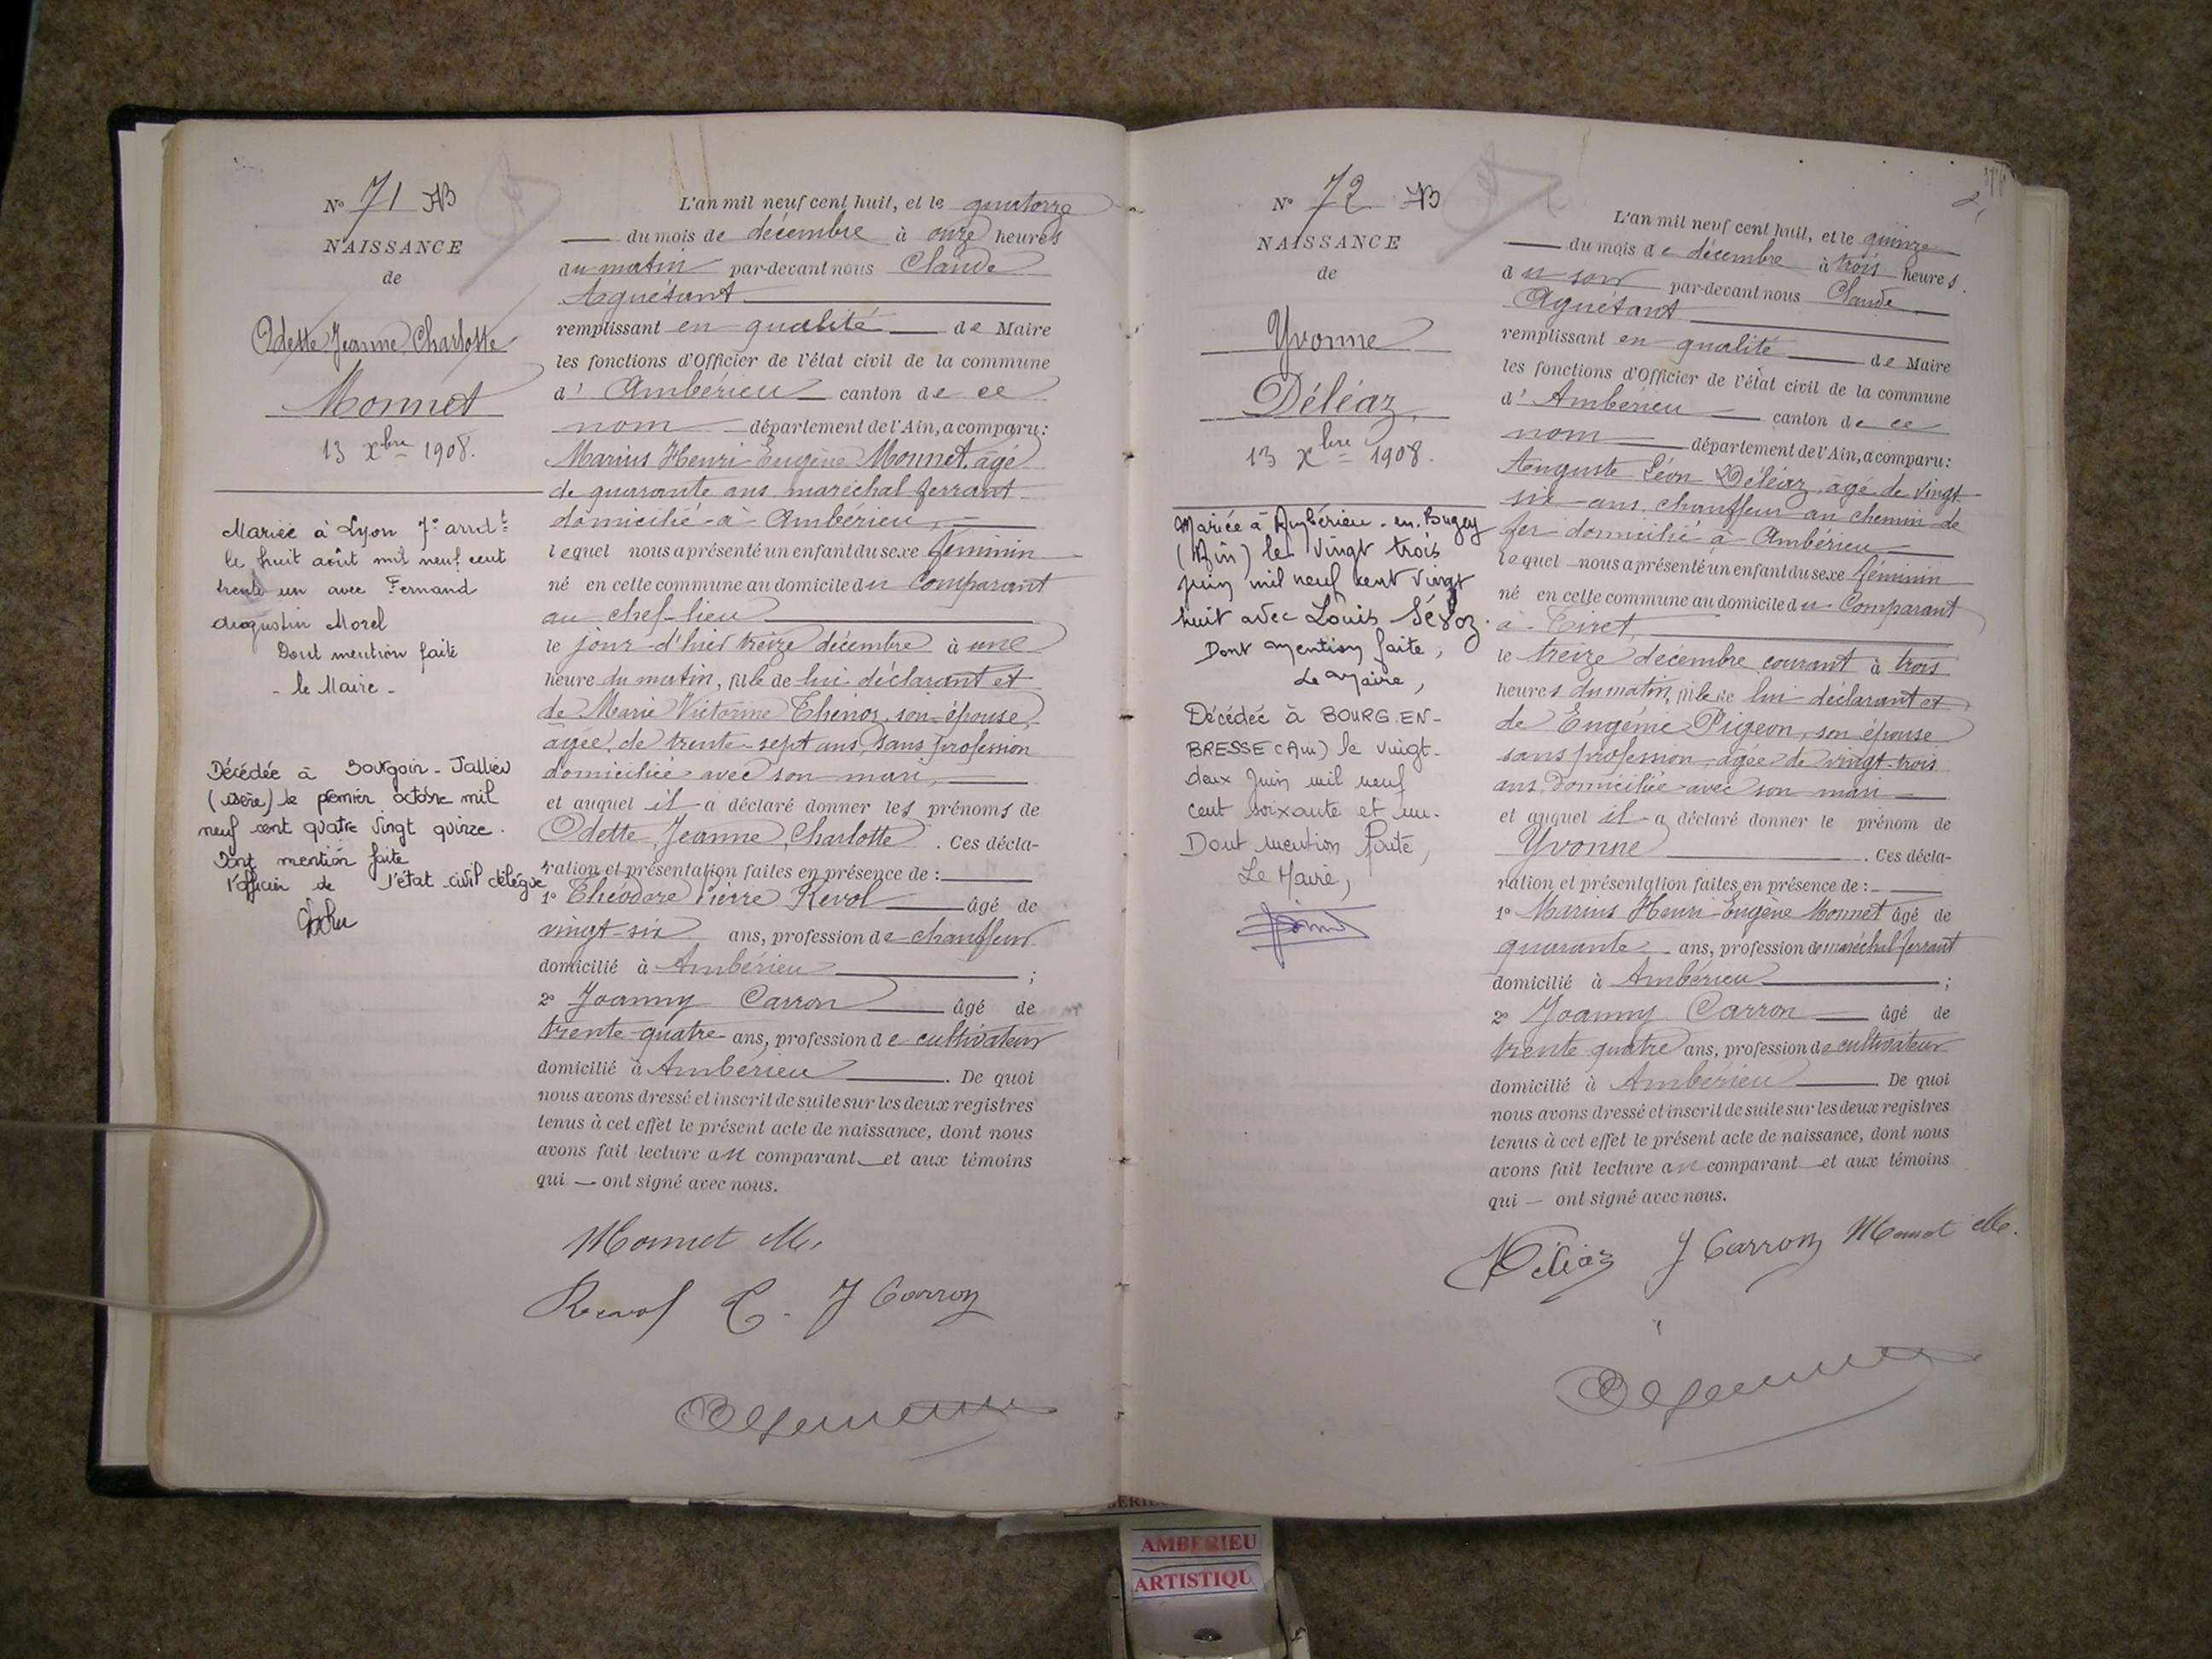 N° 71 AB
NAISSANCE
de
Odette Jeanne Charlotte
Monnet
13 Xbre 1908.
Mariée à Lyon 7e arrdt
le huit août mil neuf cent
trente un avec Fernand
Augustin Morel
Dont mention faite
- le Maire -
Décédée à Bourgoin-Jallieu
(Isère) le premier octobre mil
neuf cent quatre vingt quinze.
Dont mention faite
l'officier de l'état civil délégué
L'an mil neuf cent huit, et le quatorze
du mois de décembre à onze heures
du matin par-devant nous Claude
Aguétant
remplissant en qualité de Maire
les fonctions d'Officier de l'état civil de la commune
d'Ambérieu canton de ce
nom département de l'Ain, a comparu:
Marius Henri Eugène Monnet, âgé
de quarante ans maréchal ferrant
domicilié à Ambérieu,
lequel nous a présenté un enfant du sexe féminin
né en cette commune au domicile du Comparant
au chef-lieu
le jour d'hier treize décembre à une
heure du matin, fille de lui déclarant et
de Marie Victorine Thénoz, son épouse,
agée de trente-sept ans, sans profession
domiciliée avec son mari,
et auquel il a déclaré donner les prénoms de
Odette, Jeanne, Charlotte. Ces décla-
ration et présentation faites en présence de :
1° Théodore Pierre Revol âgé de
vingt-six ans, profession de chauffeur
domicilié à Ambérieu ;
2° Joanny Carron âgé de
trente-quatre ans, profession de cultivateur
domicilié à Ambérieu. De quoi
nous avons dressé et inscrit de suite sur les deux registres
tenus à cet effet le présent acte de naissance, dont nous
avons fait lecture au comparant et aux témoins
qui — ont signé avec nous.
Monnet M.
Revol T. J Carron
N° 72 AB
NAISSANCE
de
Yvonne
Déléaz
13 Xbre 1908.
Mariée à Ambérieu-en-Bugey
(Ain) le vingt trois
juin mil neuf cent vingt
huit avec Louis
Dont mention faite,
Le Maire,
Décédée à BOURG-EN-
BRESSE (Ain) le vingt-
deux Juin mil neuf
cent soixante et un.
Dont mention faite,
Le Maire,
L'an mil neuf cent huit, et le quinze
du mois de décembre à trois heures.
du soir par-devant nous Claude
Aguétant
remplissant en qualité de Maire
les fonctions d'Officier de l'état civil de la commune
d'Ambérieu canton de ce
nom département de l'Ain, a comparu:
Auguste Léon Déléaz, âgé de vingt
six ans, chauffeur au chemin de
fer domicilié à Ambérieu
lequel nous a présenté un enfant du sexe féminin
né en cette commune au domicile du Comparant
à Tiret,
le treize décembre courant à trois
heures du matin, fille de lui déclarant et
de Eugénie Pigeon, son épouse
sans profession, agée de vingt-trois
ans, domiciliée avec son mari
et auquel il a déclaré donner le prénom de
Yvonne. Ces décla-
ration et présentation faites en présence de :
1° Marius Henri Eugène Monnet âgé de
quarante ans, profession de maréchal ferrant
domicilié à Ambérieu ;
2° Joanny Carron âgé de
trente quatre ans, profession de cultivateur
domicilié à Ambérieu. De quoi
nous avons dressé et inscrit de suite sur les deux registres
tenus à cet effet le présent acte de naissance, dont nous
avons fait lecture au comparant et aux témoins
qui — ont signé avec nous.
Déléaz J Carron Monnet M.
AMBERIEU
ARTISTIQU